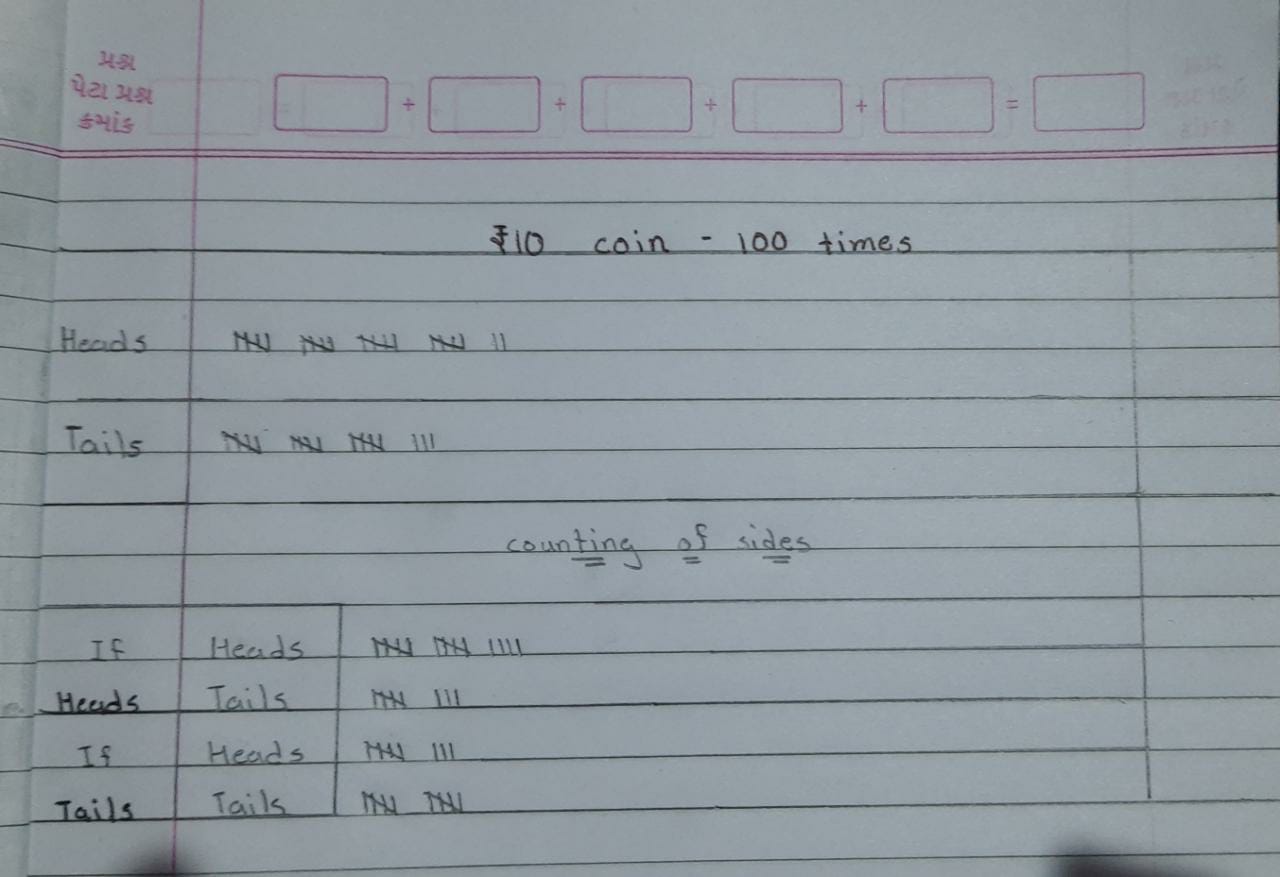 પ્રશ્ન
પેટા પ્રશ્ન
ક્રમાંક
+ + + + =
₹10 coin - 100 times
Heads 𝍸 𝍸 𝍸 𝍸 ||
Tails 𝍸 𝍸 𝍸 |||
counting of sides
If Heads 𝍸 𝍸 ||||
Heads Tails 𝍸 |||
If Heads 𝍸 |||
Tails Tails 𝍸 𝍸